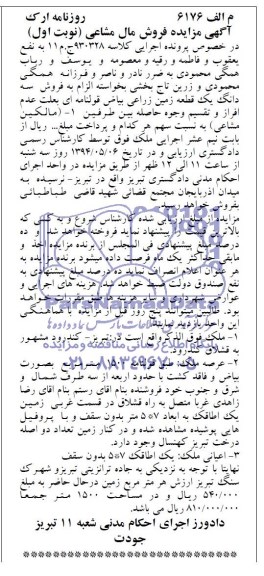 م الف ۶۱۷۶ روزنامه ارک
آگهی مزایده فروش مال مشاعی (نوبت اول)
در خصوص پرونده اجرایی کلاسه ۹۳۰۳۲۸ج.م۱۱ به نفع
یعقوب و فاطمه و رقیه و معصومه و یوسف و رباب
همگی محمودی به ضرر نادر و ناصر و فرزانه همگی
محمودی و زرین تاج بخشی بخواسته الزام به فروش سه
دانگ یک قطعه زمین زراعی بیاض قولنامه ای بعلت عدم
افراز و تقسیم وجوه حاصله بین طرفین ۱- (مالکین
مشاعی) به نسبت سهم هر کدام و پرداخت مبلغ... ریال از
بابت نیم عشر اجرایی ملک فوق توسط کارشناس رسمی
دادگستری ارزیابی و در تاریخ ۱۳۹۴/۰۵/۰۶ روز سه شنبه
از ساعت ۱۱ الی ۱۲ ظهر از طریق مزایده در واحد اجرای
احکام مدنی دادگستری تبریز واقع در تبریز- نرسیده به
میدان آذربایجان مجتمع قضائی شهید قاضی طباطبائی
بفروش خواهد رسید.
مزایده از مبلغ ارزیابی شده کارشناس شروع و به کسی که
بالاترین قیمت را پیشنهاد نماید فروخته خواهد شد و ده
درصد مبلغ پیشنهادی فی المجلس از برنده مزایده اخذ و
مابقی حداکثر یک ماه فرصت داده میشود برنده مزایده به
هر عنوان اعلام انصراف نماید ده درصد مبلغ پیشنهادی به
نفع صندوق دولت ضبط خواهد شد هزینه های اجرایی و
بود. طالبین میتوانند پنج روز قبل از مزایده با هماهنگی
این واحد بازدید نمایند.
۱- ملک فوق الذکر واقع است در تبریز- کندرود مشهور
به قشلاق کندرود.
بیاض و فاقد کشت با حدود اربعه از سه طرف شمال و
شرق و جنوب خود فروشنده بنام آقای رستم بنام آقای رضا
زاهدی غربا متصل به راه قشلاق در قسمت غربی زمین
یک اطاقک به ابعاد ۷*۵ متر بدون سقف و با پروفیل
هایی پوشیده مشاهده شده و در کنار زمین تعداد دو اصله
درخت تبریزی کهنسال وجود دارد.
۳- اعیانی ملک: یک اطاقک ۷*۵ بدون سقف
نهایتا با توجه به نزدیکی به جاده ترانزیتی تبریز و شهرک
سنگ تبریز ارزش هر متر مربع زمین درحال حاضر به مبلغ
۵۴۰/۰۰۰ ریال و در مساحت ۱۵۰۰ متر جمعا
۸۱۰/۰۰۰/۰۰۰ ریال می باشد.
دادورز اجرای احکام مدنی شعبه ۱۱ تبریز
جودت